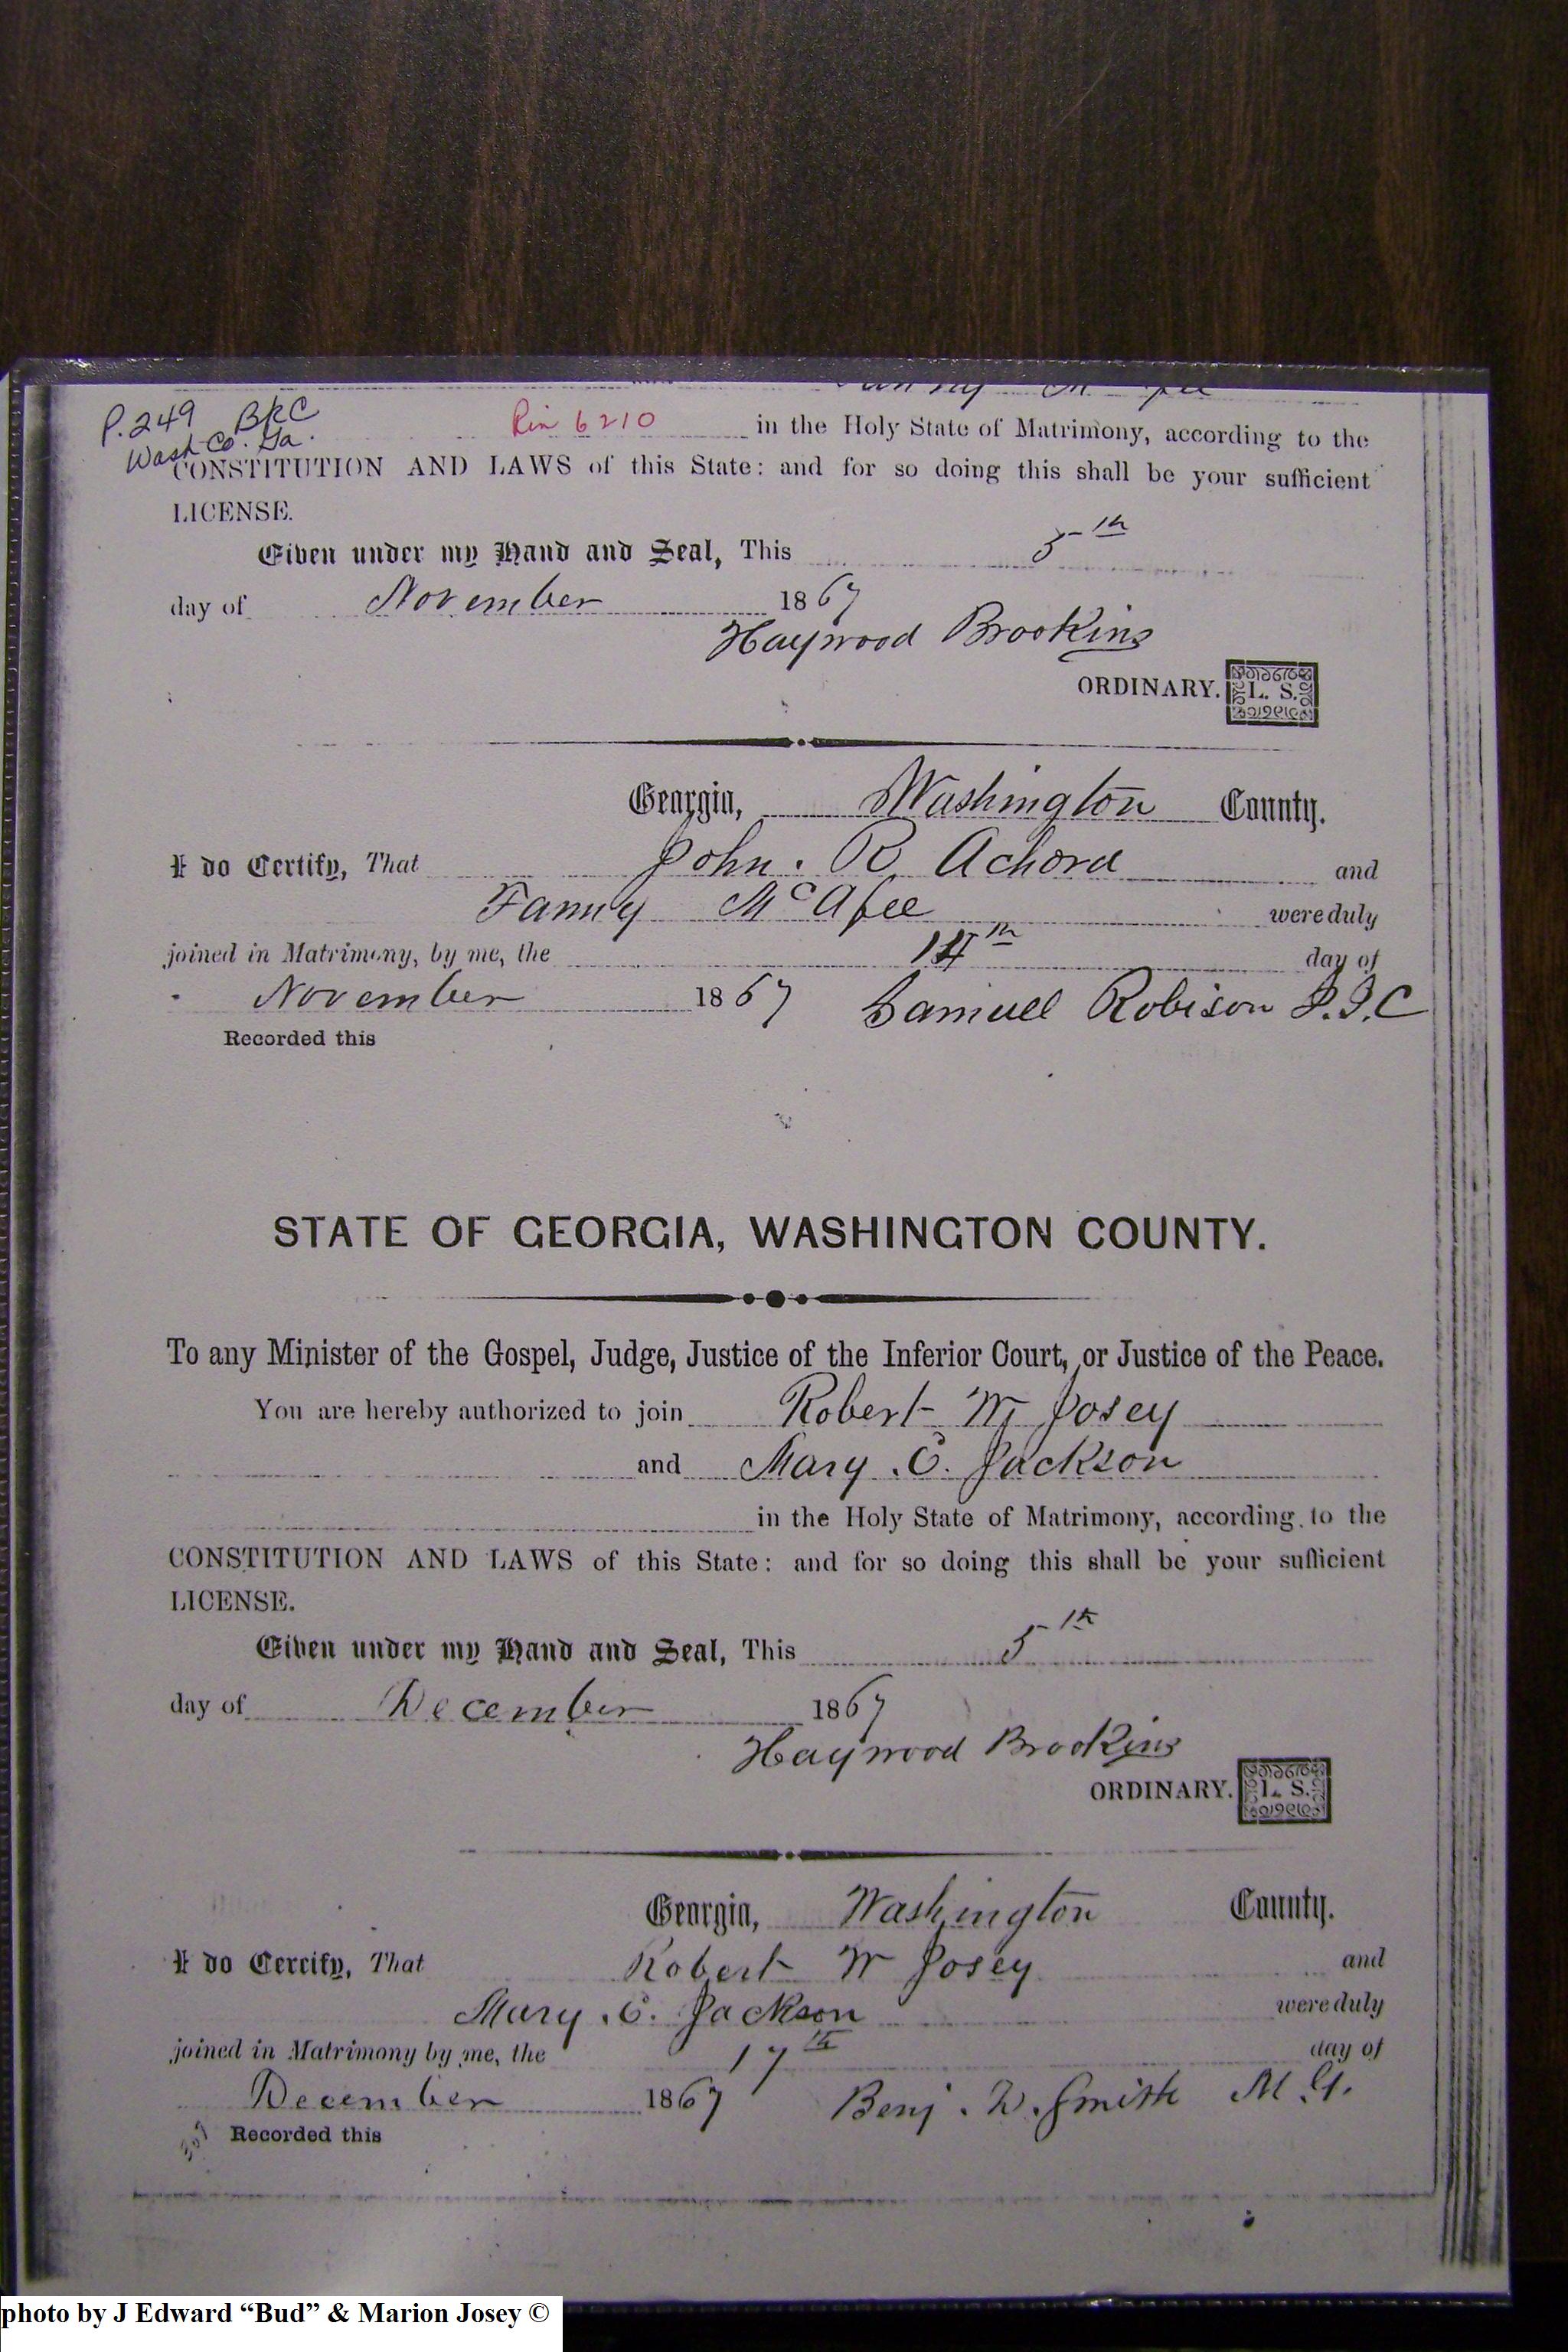 P.249 BKC
Wash Co. Ga.
Rin 6210 in the Holy State of Matrimony, according to the
CONSTITUTION AND LAWS of this State: and for so doing this shall be your sufficient
LICENSE.
Given under my Hand and Seal, This 5th
day of November 1867
Haywood Brookins
ORDINARY. L. S.
Georgia, Washington County.
I do Certify, That John. R. Achord and
Fanny McAfee were duly
joined in Matrimony, by me, the 14th day of
November 1867 Samuel Robison J.I.C
Recorded this
STATE OF GEORGIA, WASHINGTON COUNTY.
To any Minister of the Gospel, Judge, Justice of the Inferior Court, or Justice of the Peace.
You are hereby authorized to join Robert W Josey
and Mary .E. Jackson
in the Holy State of Matrimony, according to the
CONSTITUTION AND LAWS of this State: and for so doing this shall be your sufficient
LICENSE.
Given under my Hand and Seal, This 5th
day of December 1867
Haywood Brookins
ORDINARY. L. S.
Georgia, Washington County.
I do Cercify, That Robert W Josey and
Mary .E. Jackson were duly
joined in Matrimony by me, the 17th day of
December 1867 Benj. W. Smith M.G.
Recorded this
photo by J Edward “Bud” & Marion Josey ©